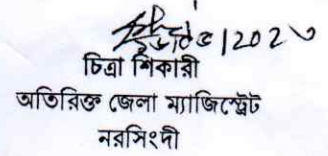 চিত্রা শিকারী
অতিরিক্ত জেলা ম্যাজিস্ট্রেট
নরসিংদী